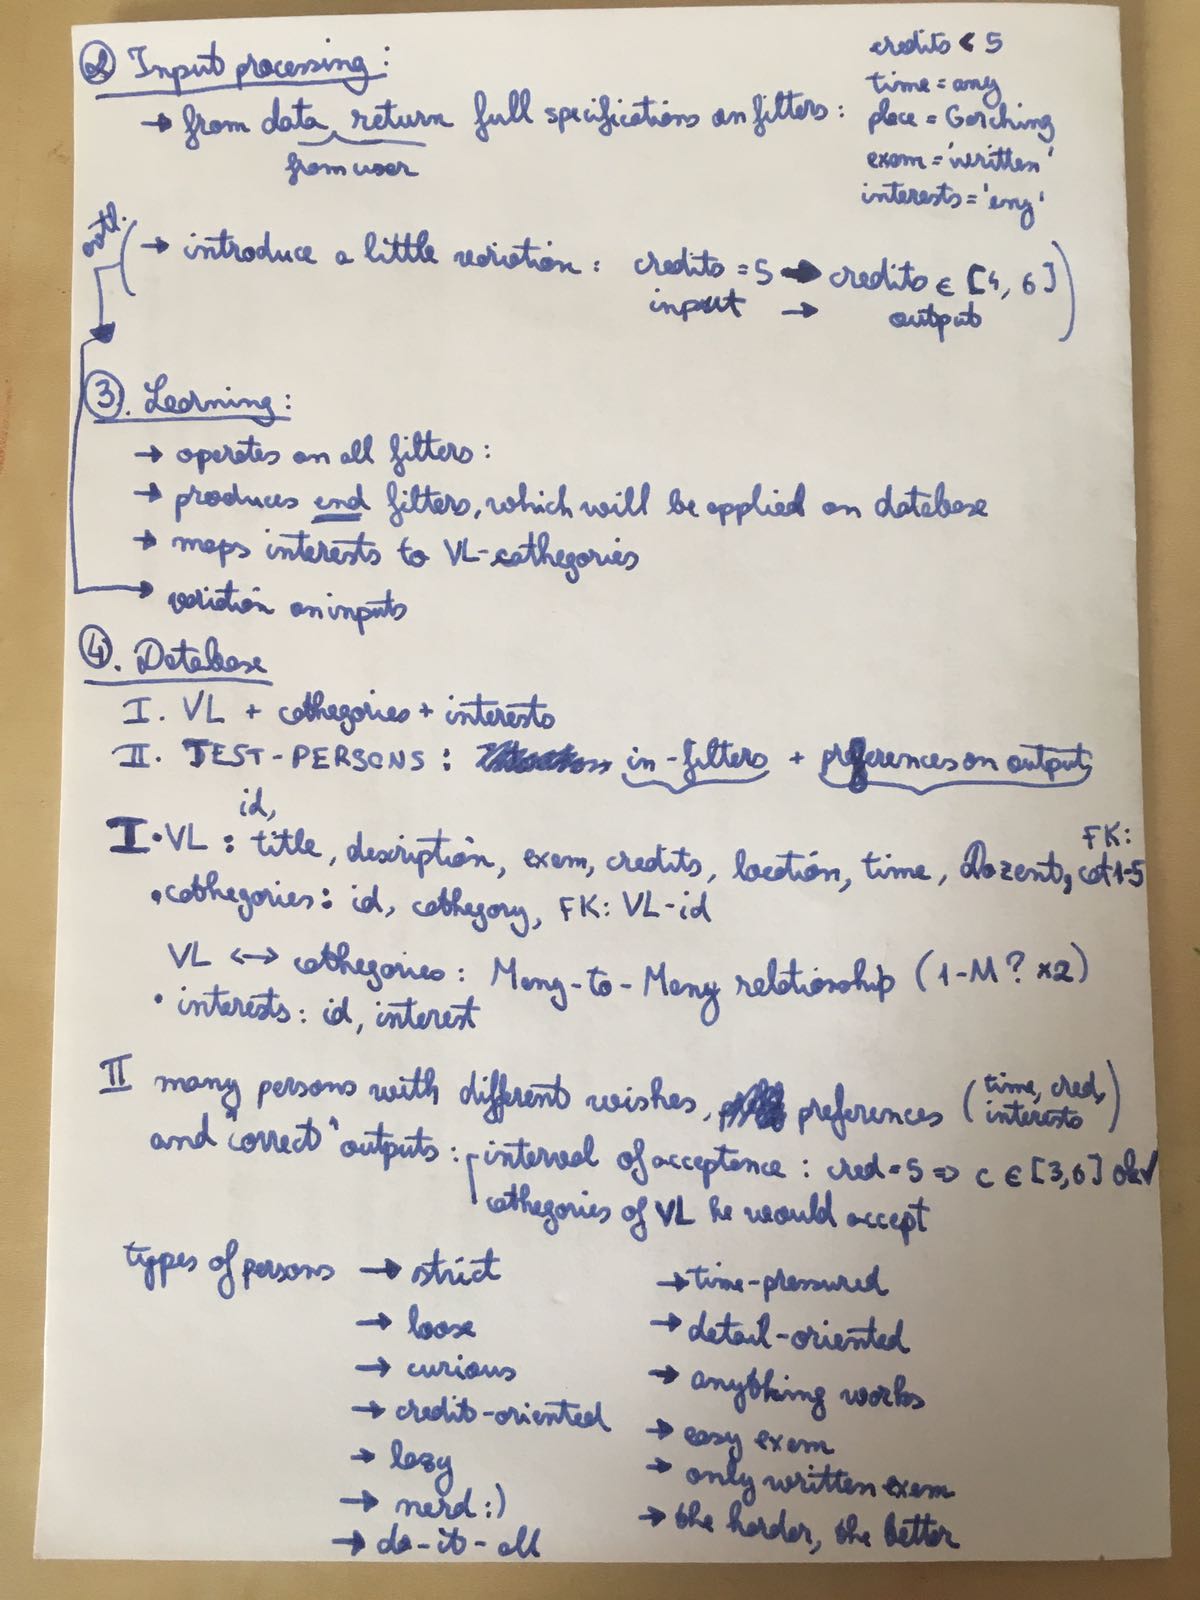 ② Input processing:
→ from data return full specifications on filters:
from user
credits < 5
time = any
place = Garching
exam = 'written'
interests = 'eng'
→ introduce a little variation: credits = 5 → credits ∈ [4, 6]
input → output
③. Learning:
→ operates on all filters:
→ produces end filters, which will be applied on database
→ maps interests to VL-cathegories
→ variation on inputs
④. Database
I. VL + cathegories + interests
II. TEST-PERSONS: in-filters + preferences on output
id,
I • VL: title, description, exam, credits, location, time, Dozent, cat1-5
FK:
• cathegories: id, cathegory, FK: VL-id
VL <-> cathegories: Many-to-Many relationship (1-M? x2)
• interests: id, interest
II many persons with different wishes, preferences (time, cred, interests)
and "correct" outputs: interval of acceptance: cred = 5 => c ∈ [3,6] ok✓
cathegories of VL he would accept
types of persons → strict
→ loose
→ curious
→ credit-oriented
→ lazy
→ nerd :)
→ do-it-all
→ time-pressured
→ detail-oriented
→ anything works
→ easy exam
→ only written exam
→ the harder, the better